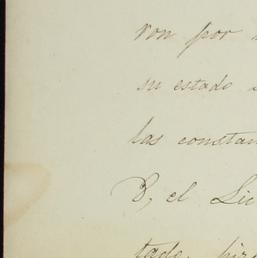 ron por
su estado
las constan
P, el Lic
tado, hizo